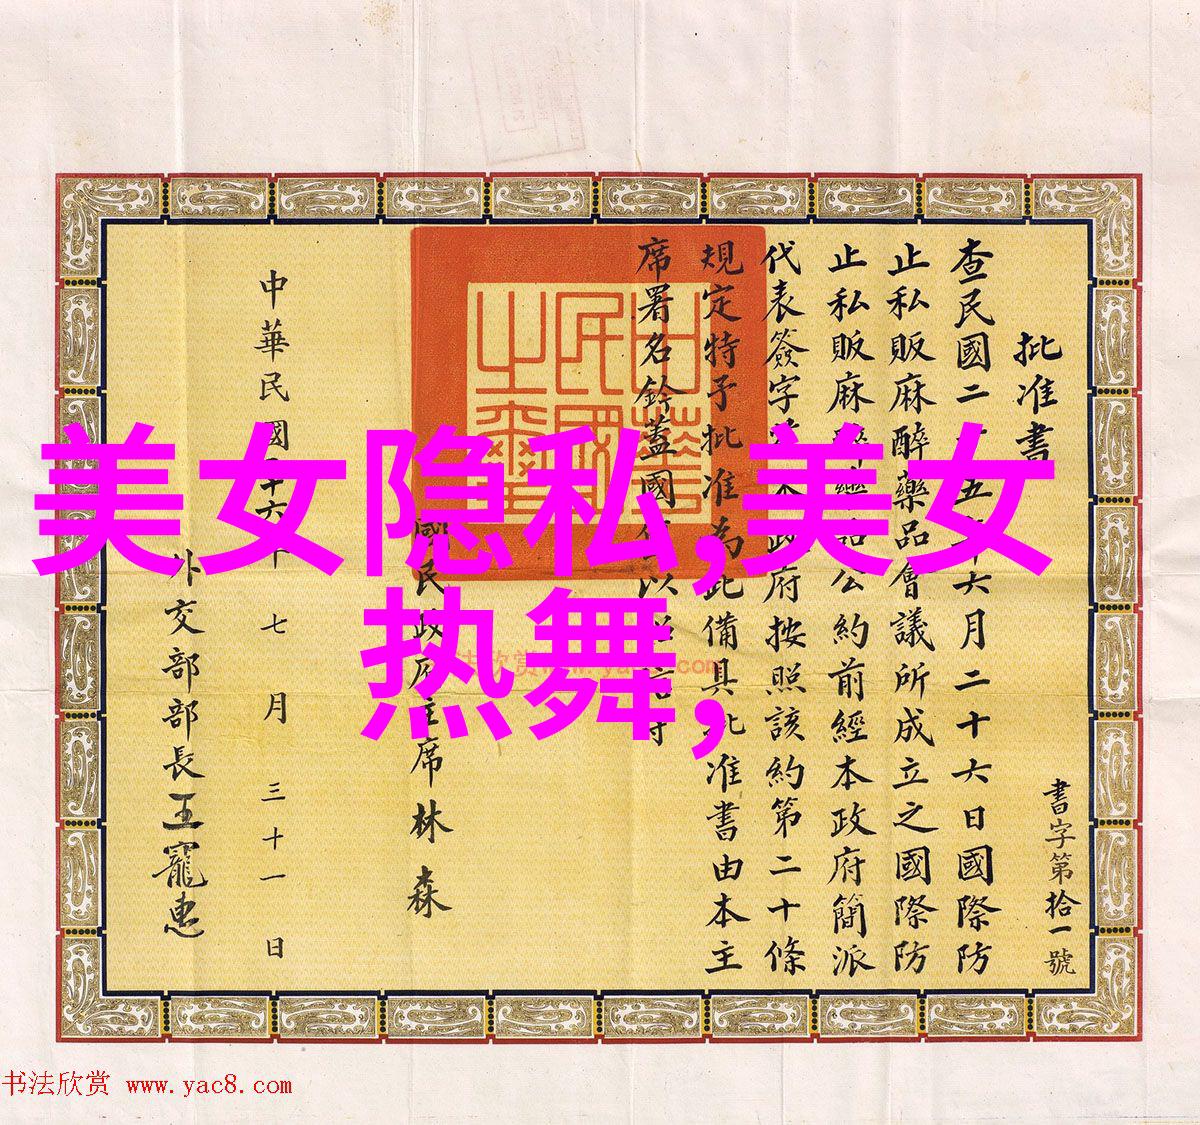 批准書
書字第拾一號
查民國二十五年六月二十六日國際防
止私販麻醉藥品會議所成立之國際防
止私販麻公約前經本政府簡派
代表簽字政府按照該約第二十條
規定特予批准為此備具批准書由本主
席署名鈐蓋國以昭信守
國民政府主席林森
中華民國二十六年七月三十一日
外交部部長王寵惠
中華民國之璽
美女隐私,美女
热舞,
书法欣赏 www.yac8.com